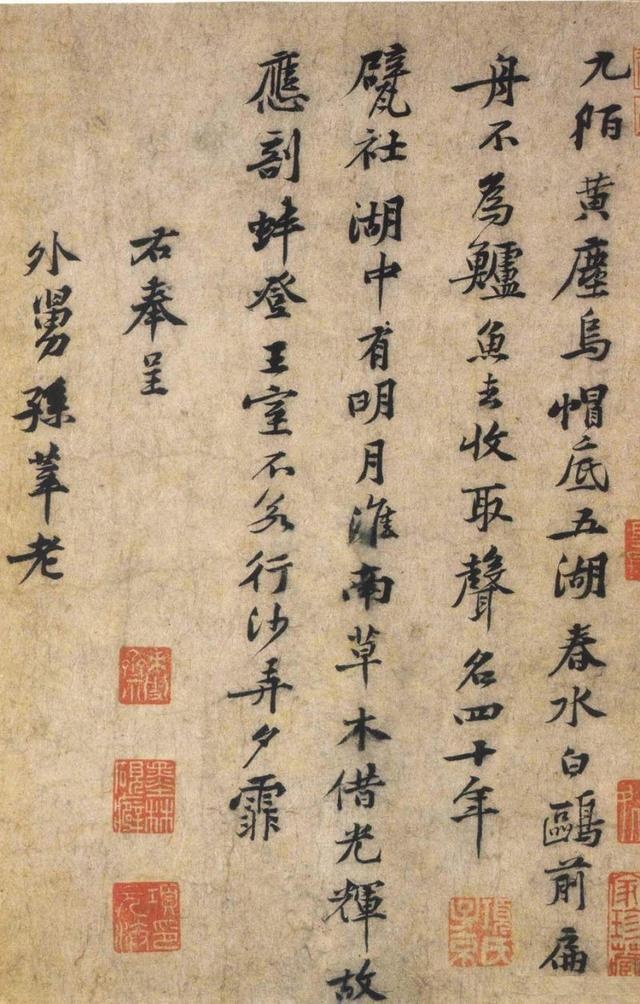 九陌黃塵烏帽底五湖春水白鷗前扁
舟不為鱸魚去收取聲名四十年
甓社湖中有明月淮南草木借光輝故
應剖蚌登王室不若行沙弄夕霏
右奉呈
外舅孫莘老
家珍藏
項氏子京
墨林
項元汴印